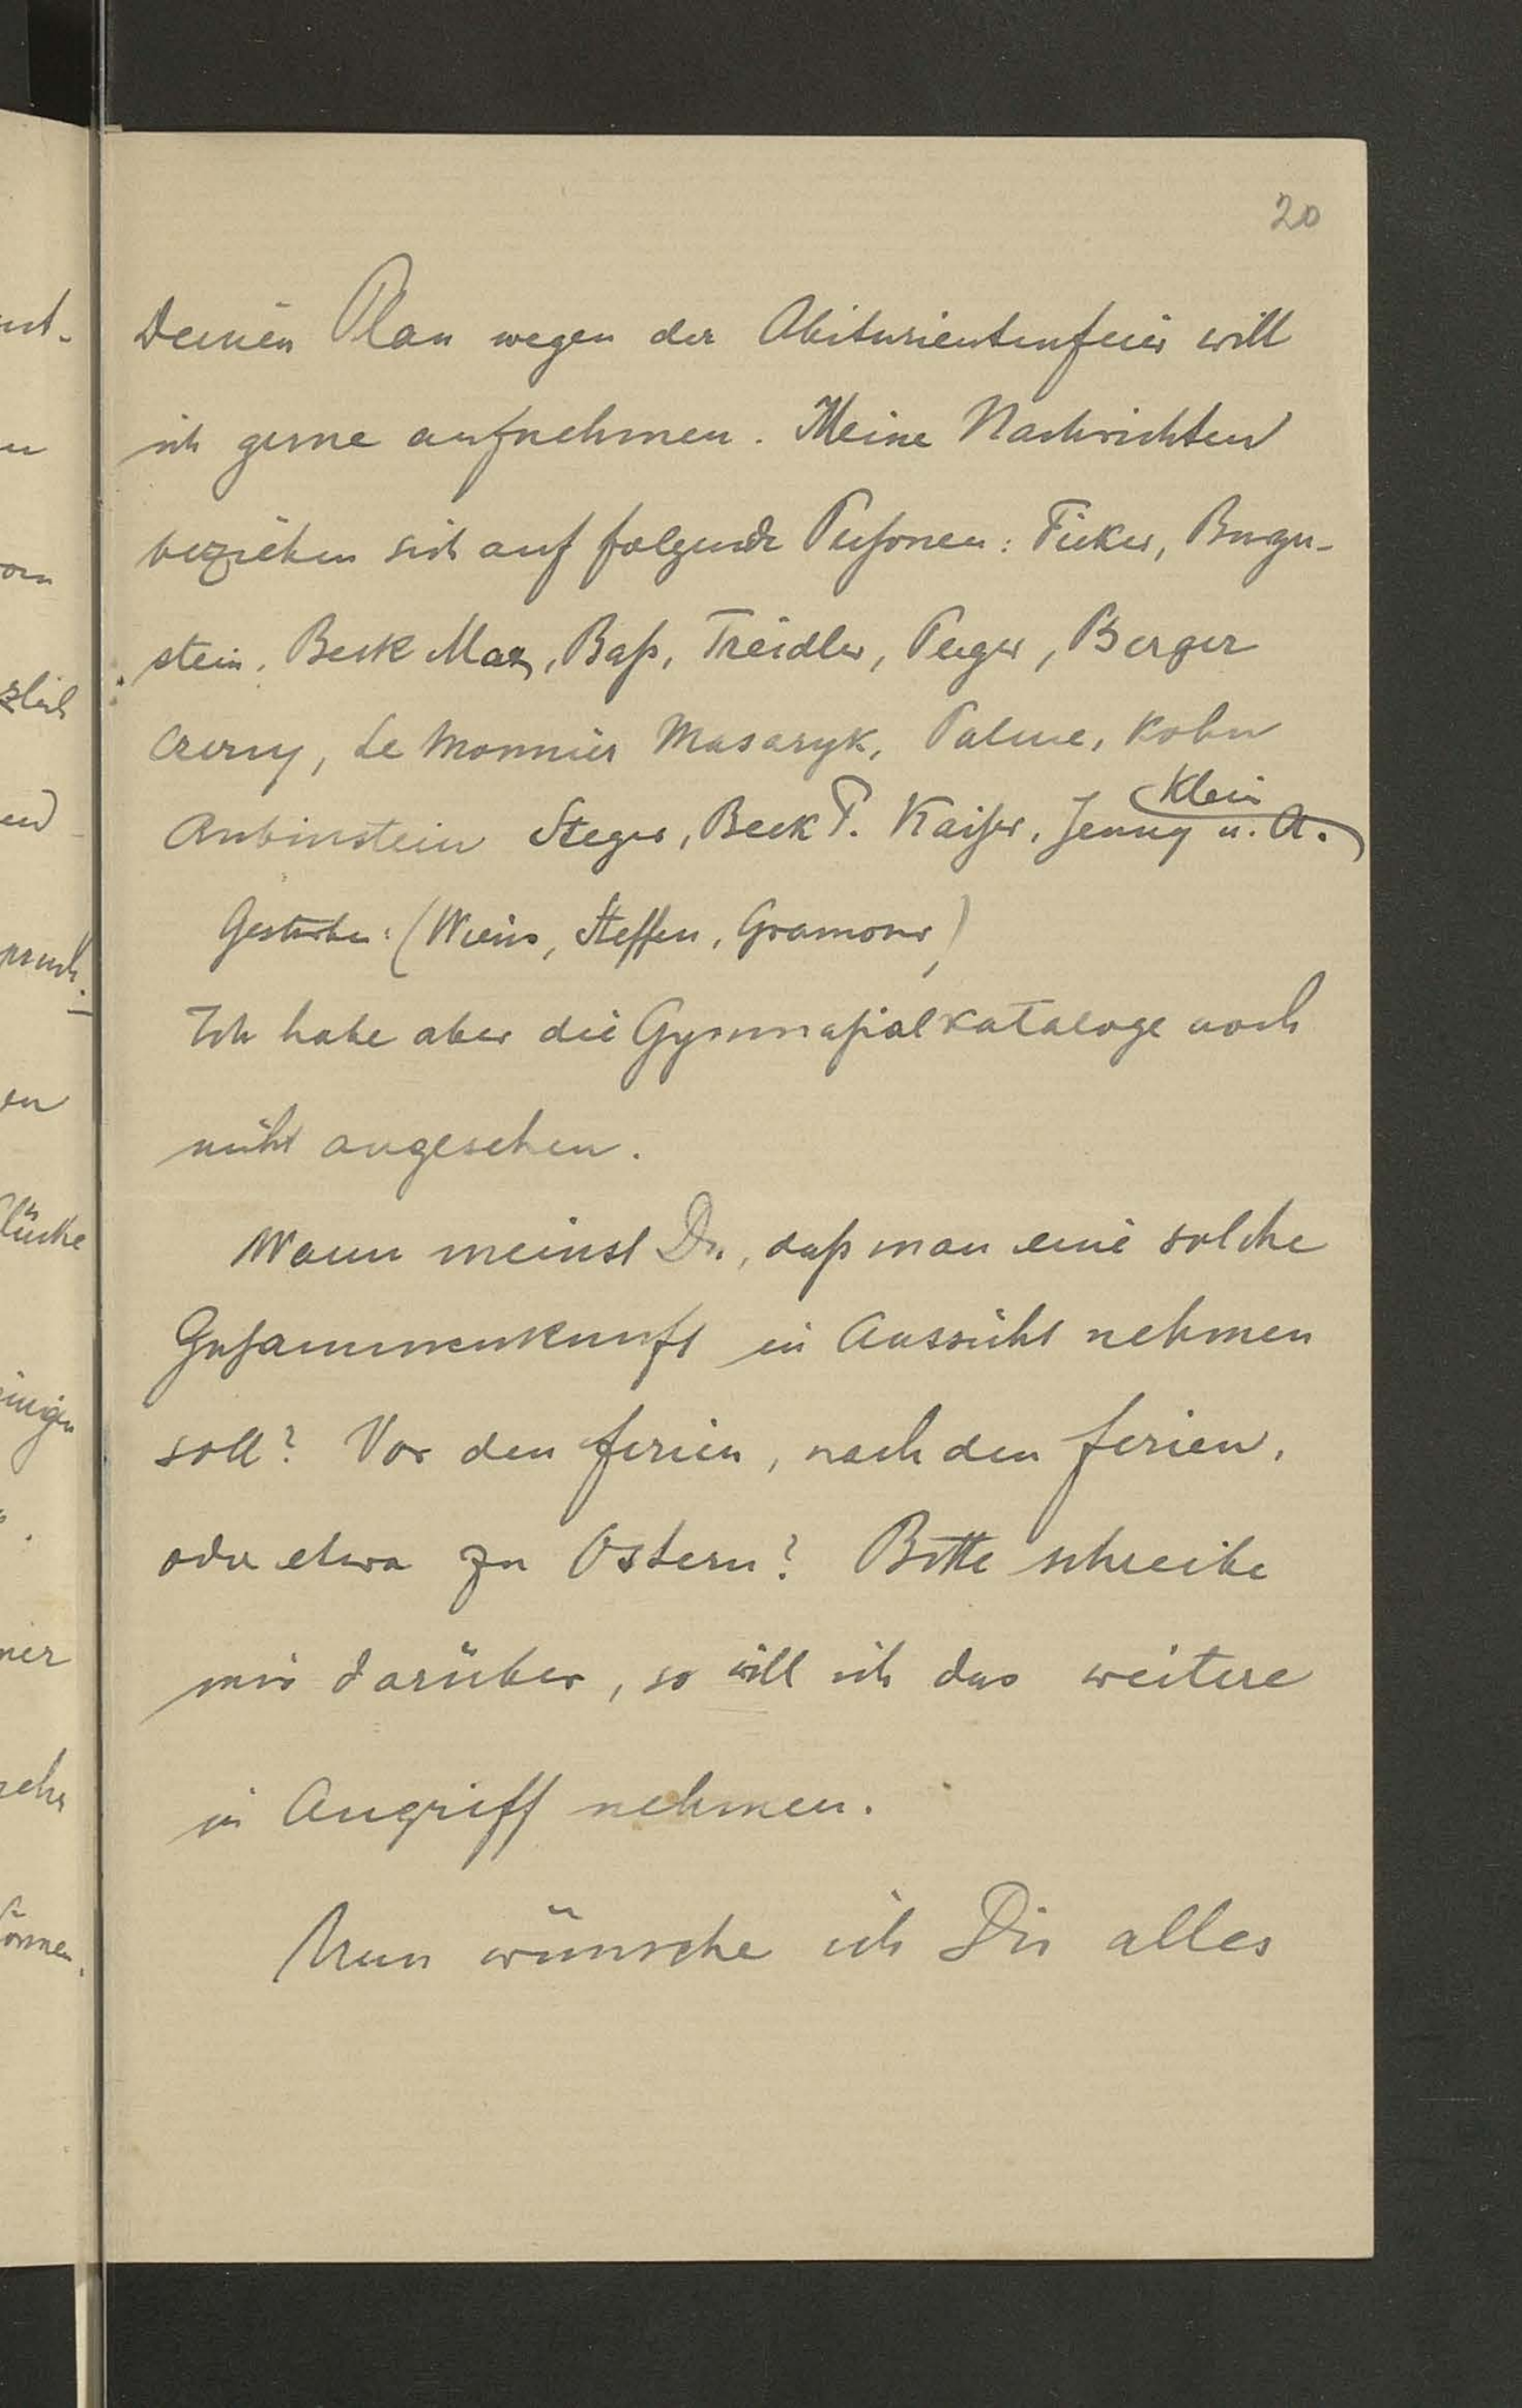 20
Deinen Plan wegen der Abiturientenfeier will
ich gerne aufnehmen. Meine Nachrichten
beziehen sich auf folgende Personen: Ficker, Burger-
stein, Beck Max, Baß, Treidler, Peger, Berger
Czerny, Le Monnier Masaryk, Palme, Kohn
Rubinstein Steger, Beck P. Kaiser, Jenny u. A.
Klein
Gestorben: (Weiss, Steffen,
Ich habe aber die Gymnasialkataloge noch
nicht angesehen.
Wann meinst Du, daß man eine solche
Zusammenkunft in Aussicht nehmen
soll? Vor den Ferien, nach den Ferien,
oder etwa zu Ostern? Bitte schreibe
mir darüber, so will ich das weitere
in Angriff nehmen.
Nun wünsche ich Dir alles